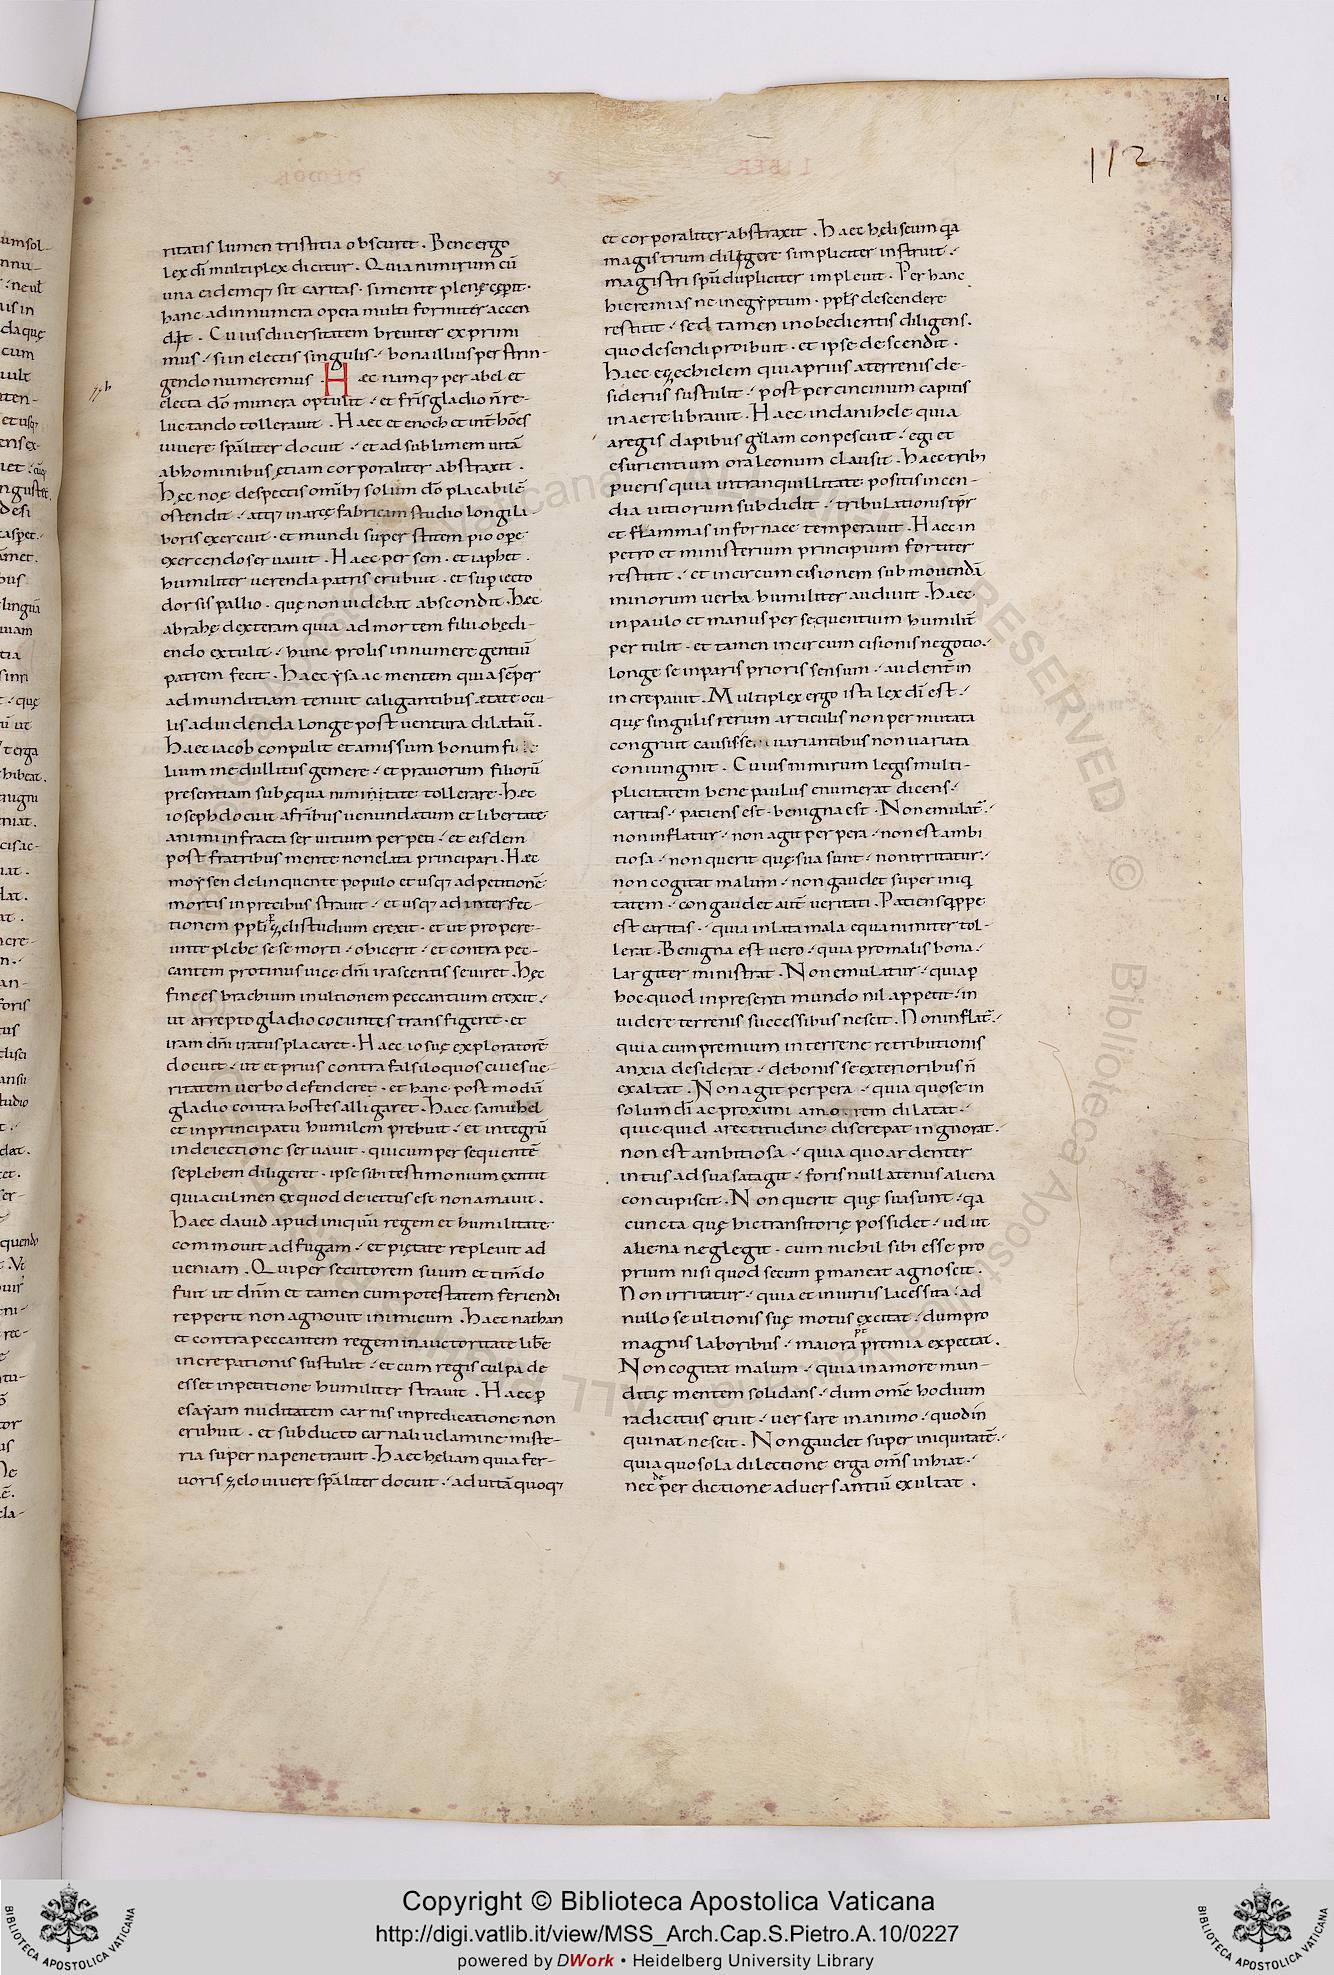 112
ritatis lumen tristitia obscuret . Bene ergo
lex dī multiplex dicitur . Quia nimirum cū
una eademq; sit caritas · si mente plenę cępit ·
hanc ad innumera opera multi formiter accen
dit . Cuius diversitatem breviter exprimi
mus ·/ si in electis singulis ·/ bona illius per strin-
gendo numeremus . Haec namq; per abel et
electa dō munera optulit ·/ et frīs gladio n̄ re-
luctando tolleravit . Haec et enoch et int̄ hōēs
vivere sp̄aliter docuit ·/ et ad sublimem vitā
ab hominibus ętiam corporaliter abstraxit .
Hęc noę despectis omīb; solum dō placabilē
ostendit ·/ atq; in arcę fabricam studio longi la-
boris exercuit · et mundi superstitem pio ope
exercendo servavit . Haec per sem · et iaphet .
humiliter verenda patris erubuit · et sup iecto
dorsis pallio · quę non videbat abscondit . Hęc
abrahę dexteram quia ad mortem filii obędi-
endo extulit ·/ hunc prolis in numere gentiū
patrem fecit . Haec ysaac mentem quia sēper
ad munditiam tenuit caligantibus ætate ocu-
lis ad videnda longe post ventura dilatavit .
Haec iacob conpulit et amissum bonum fi
lium medullitus gemere ·/ et pravorum filiorū
presentiam sub ęquanimitate tollerare · Hęc
ioseph docuit a frībus venundatum et libertate
animi infracta servitium perpeti ·/ et eisdem
post fratribus mente non elata principari . Hæc
moysen delinquente populo et usq; ad petitionē
mortis in precibus stravit ·/ et usq; ad interfec-
tionem ppl̄i zeli studium erexit · et ut pro pere-
unte plebe sese morti ·/ obicerit ·/ et contra pec-
cantem protinus vice dn̄i irascentis seviret . Hęc
finees brachium in ultionem peccantium erexit ·/
ut arrepto gladio coeuntes transfigeret · et
iram dn̄i iratus placaret . Haec iosuę exploratorē
docuit ·/ ut et prius contra falsiloquos cives ve-
ritatem verbo defenderet · et hanc post modū
gladio contra hostes alligaret . Haec samuhel
et in principatu humilem prebuit ·/ et integrū
in deiectione servavit · qui cum persequentē
se plebem diligeret · ipse sibi testimonium extitit
quia culmen ex quo deiectus est non amavit .
Haec david apud iniquū regem et humilitate
commovit ad fugam ·/ et pietate replevit ad
veniam . Qui persecutorem suum et timēdo
fuit ut dn̄m et tamen cum potestatem feriendi
repperit non agnovit inimicum . Haec nathan
et contra peccantem regem in auctoritate lib̄e
increpationis sustulit ·/ et cum regis culpa de
esset in petitione humiliter stravit . Haec p
esayam nuditatem carnis in predicatione non
erubuit . et subducto carnali velamine miste-
ria superna penetravit . Haec heliam quia fer-
voris zelo vivere sp̄aliter docuit ·/ ad vitā quoq;
et corporaliter abstraxit . Haec hęliseum qa
magistrum diligere simpliciter instruit ·/
magistri sp̄u dupliciter implevit . Per hanc
hieremias ne in egyptum · ppl̄s descendere
restitit ·/ sed tamen inobedientis diligens .
quo desendi proibuit · et ipse descendit .
Haec ezechielem quia prius a terrenis de-
sideriis sustulit ·/ post per cincinum capitis
in aere libravit . Haec in danihele quia
a regis dapibus gulam conpescuit ·/ egi et
esurientium ora leonum clausit . Haec trib;
pueris quia in tranquillitate positis incen-
dia vitiorum subdidit ·/ tribulationis tpr
et flammas in fornace temperavit . Haec in
petro et ministerium principium fortiter
restitit ·/ et in circumcisionem submovendā
minorum verba humiliter audivit . Haec
in paulo et manus persequentium humilit̄
pertulit · et tamen in circumcisionis negotio ·/
longe se inparis prioris sensum ·/ audent̄ in
increpavit . Multiplex ergo ista lex dī est ·/
quę singulis rerum articulis non permutata
congruit causis se variantibus non variata
coniungnit . Cuius nimirum legis multi-
plicitatem bene paulus enumerat dicens ·/
caritas ·/ patiens est · benigna est . Non emulat̄ ·/
non inflatur ·/ non agit perpera ·/ non est ambi
tiosa ·/ non querit quę sua sunt ·/ non irritatur ·/
non cogitat malum ·/ non gaudet super iniq
tatem ·/ congaudet aut̄ veritati . Patiens qppe
est caritas ·/ quia inlata mala equanimiter tol-
lerat . Benigna est vero ·/ quia pro malis bona ·/
largiter ministrat . Non emulatur ·/ quia p
hoc quod in presenti mundo nil appetit ·/ in
videre terrenis successibus nescit . Non inflat̄ ·/
quia cum premium interne retributionis
anxia desiderat ·/ de bonis se exterioribus n̄
exaltat . Non agit perpera ·/ quia quo se in
solum dī ac proximi amorem dilatat ·/
quicquid a rectitudine discrepat ingnorat .
non est ambitiosa ·/ quia quo ardenter
intus ad sua satagit ·/ foris nullatenus aliena
concupiscit . Non querit quę sua sunt ·/ qa
cuncta quę hic transitorię possidet ·/ velut
aliena neglegit · cum nichil sibi esse pro
prium nisi quod secum pmaneat agnoscit .
Non irritatur ·/ quia et iniuriis lacessita ·/ ad
nullo se ultionis suę motus excitat ·/ dum pro
magnis laboribus ·/ maiora premia expectat .
Non cogitat malum ·/ quia in amore mun-
ditię mentem solidans ·/ dum omē hodium
radicitus eruit ·/ versare in animo ·/ quod in
quinat nescit . Non gaudet super iniquitatē ·/
quia quo sola dilectione erga om̄s inhiat ·/
nec de perdictione adversantiū exultat .
Copyright © Biblioteca Apostolica Vaticana
http://digi.vatlib.it/view/MSS_Arch.Cap.S.Pietro.A.10/0227
powered by DWork • Heidelberg University Library
BIBLIOTECA APOSTOLICA VATICANA
BIBLIOTECA APOSTOLICA VATICANA